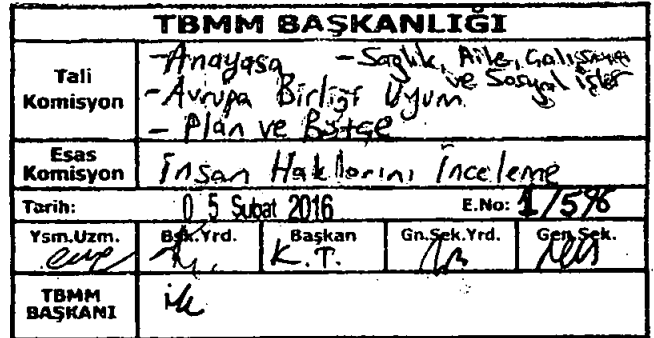 TBMM BAŞKANLIĞI
Tali Komisyon
-Anayasa - Sağlık, Aile, Çalışma ve Sosyal İşler
-Avrupa Birliği Uyum
- Plan ve Bütçe
Esas Komisyon
İnsan Haklarını İnceleme
Tarih: 05 Şubat 2016 E.No: 1/596
Ysm.Uzm. Bşk.Yrd. Başkan Gn.Sek.Yrd. Gen.Sek.
K.T.
TBMM BAŞKANI